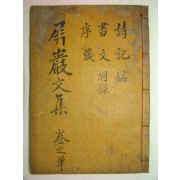 詩記銘
書文附錄
序箴
屛巖文集 卷之單